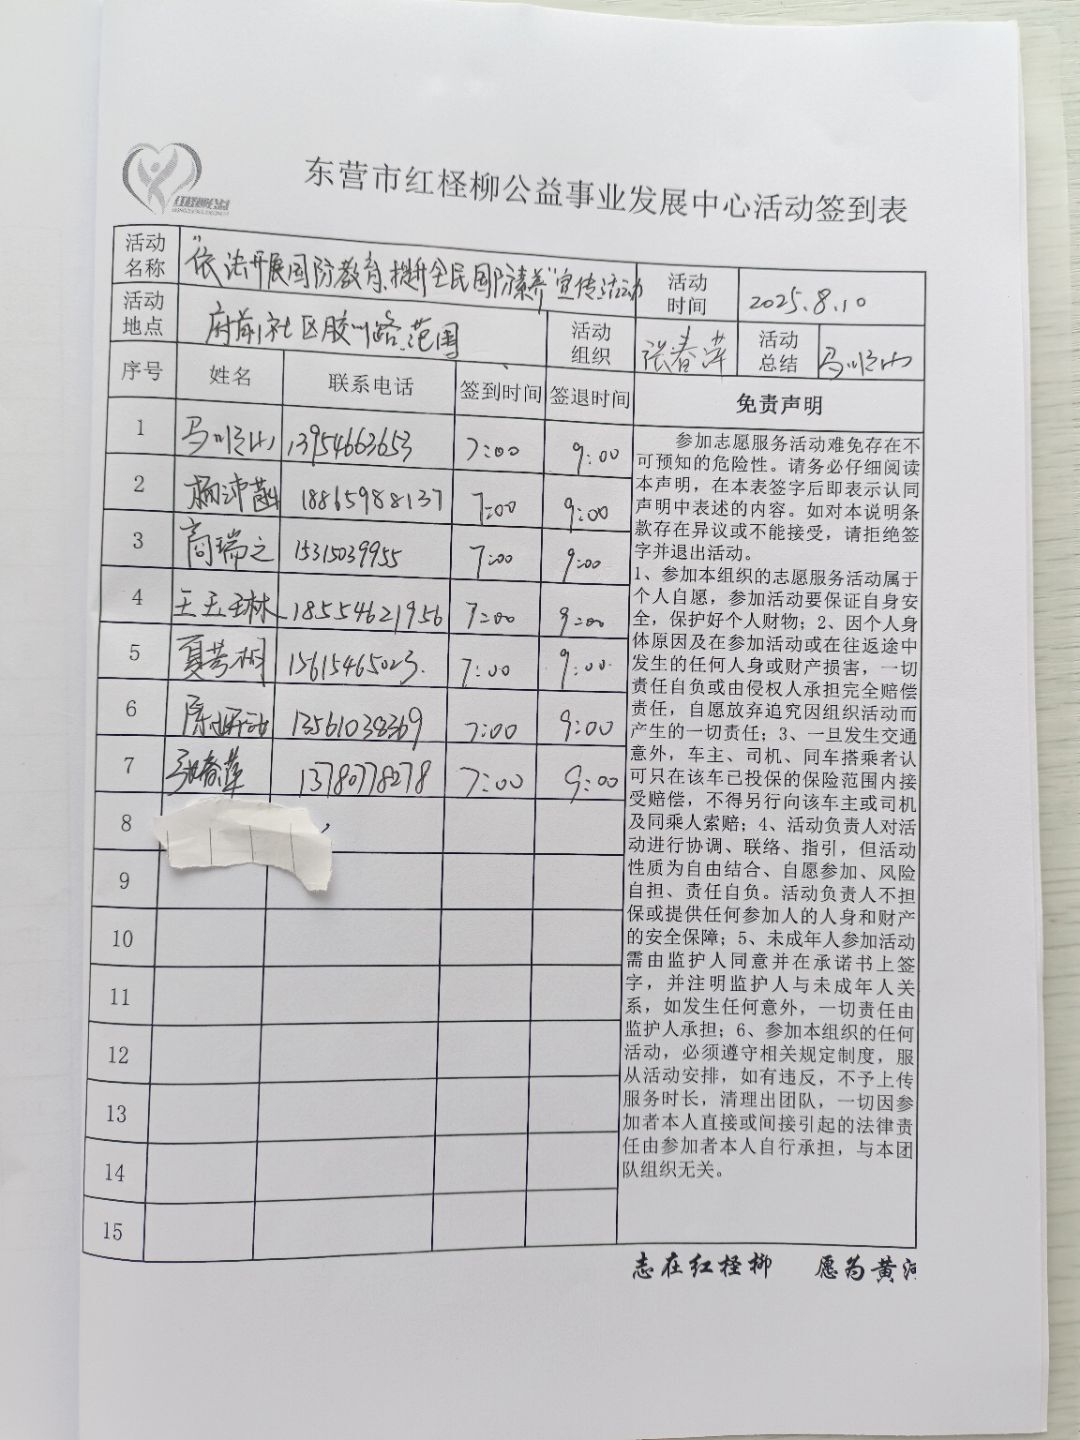 东营市红柽柳公益事业发展中心活动签到表
活动名称 "依法开展国防教育、提升全民国防素养"宣传活动 活动时间 2025.8.10
活动地点 府前社区胶州路范围 活动组织 张春萍 活动总结 马顺山
序号 姓名 联系电话 签到时间 签退时间 免责声明
1 马顺山 13954663653 7:00 9:00
2 杨沛 18865988137 7:00 9:00
3 商瑞之 15315039955 7:00 9:00
4 王玉林 18554621956 7:00 9:00
5 夏芳树 15615465023. 7:00 9:00
6 13561038369 7:00 9:00
7 张春萍 13780778278 7:00 9:00
8
9
10
11
12
13
14
15
参加志愿服务活动难免存在不
可预知的危险性。请务必仔细阅读
本声明，在本表签字后即表示认同
声明中表述的内容。如对本说明条
款存在异议或不能接受，请拒绝签
字并退出活动。
1、参加本组织的志愿服务活动属于
个人自愿，参加活动要保证自身安
全，保护好个人财物；2、因个人身
体原因及在参加活动或在往返途中
发生的任何人身或财产损害，一切
责任自负或由侵权人承担完全赔偿
责任，自愿放弃追究因组织活动而
产生的一切责任；3、一旦发生交通
意外，车主、司机、同车搭乘者认
可只在该车已投保的保险范围内接
受赔偿，不得另行向该车主或司机
及同乘人索赔；4、活动负责人对活
动进行协调、联络、指引，但活动
性质为自由结合、自愿参加、风险
自担、责任自负。活动负责人不担
保或提供任何参加人的人身和财产
的安全保障；5、未成年人参加活动
需由监护人同意并在承诺书上签
字，并注明监护人与未成年人关
系，如发生任何意外，一切责任由
监护人承担；6、参加本组织的任何
活动，必须遵守相关规定制度，服
从活动安排，如有违反，不予上传
服务时长，清理出团队，一切因参
加者本人直接或间接引起的法律责
任由参加者本人自行承担，与本团
队组织无关。
志在红柽柳 愿为黄河